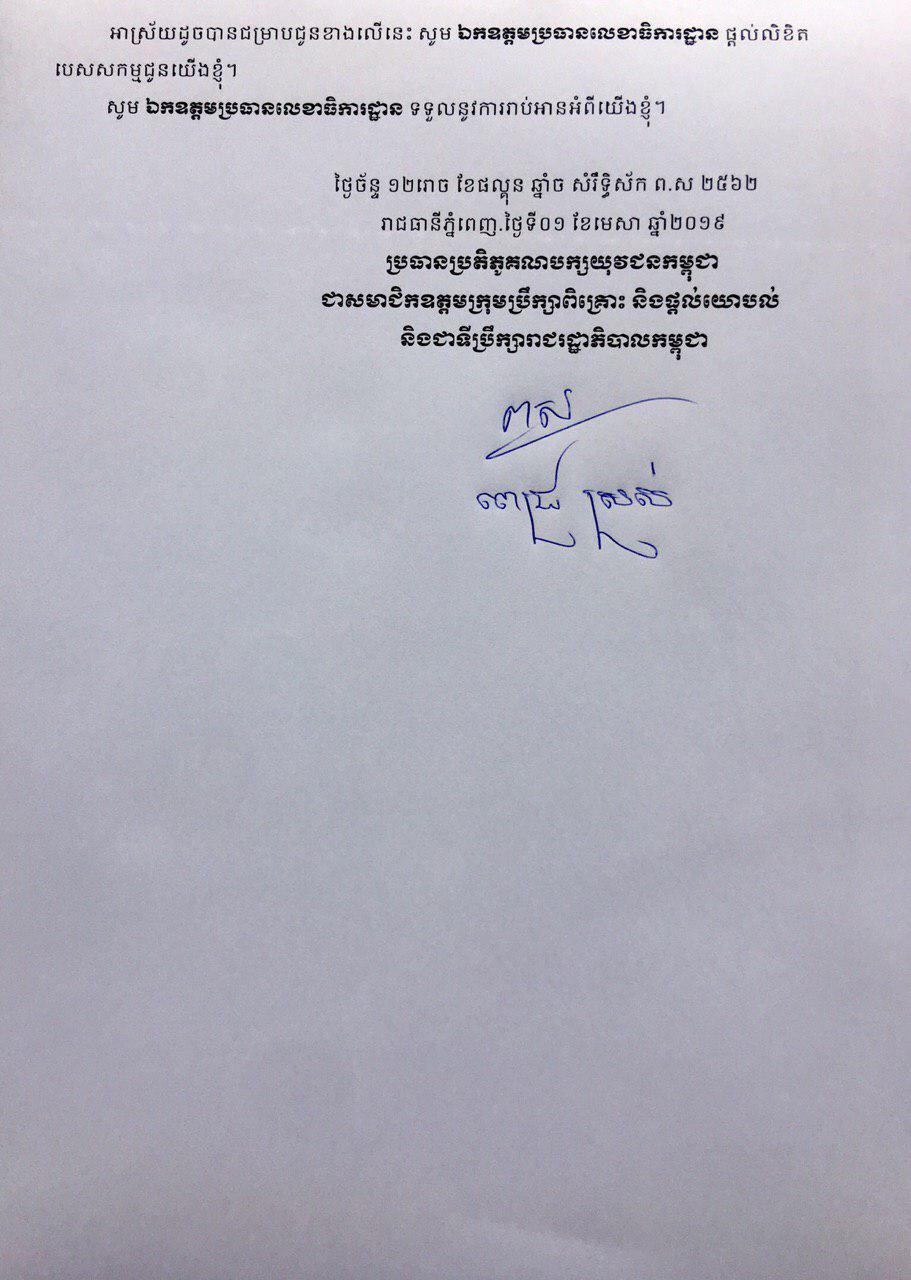 អាស្រ័យដូចបានជម្រាបជូនខាងលើនេះ សូម ឯកឧត្តមប្រធានលេខាធិការដ្ឋាន ផ្តល់លិខិត
បេសសកម្មជូនយើងខ្ញុំ។
សូម ឯកឧត្តមប្រធានលេខាធិការដ្ឋាន ទទួលនូវការរាប់អានអំពីយើងខ្ញុំ។
ថ្ងៃច័ន្ទ ១២រោច ខែផល្គុន ឆ្នាំច សំរឹទ្ធិស័ក ព.ស ២៥៦២
រាជធានីភ្នំពេញ.ថ្ងៃទី០១ ខែមេសា ឆ្នាំ២០១៩
ប្រធានប្រតិភូគណបក្សយុវជនកម្ពុជា
ជាសមាជិកឧត្តមក្រុមប្រឹក្សាពិគ្រោះ និងផ្តល់យោបល់
និងជាទីប្រឹក្សារាជរដ្ឋាភិបាលកម្ពុជា
ពស
ពេជ្រ ស្រស់